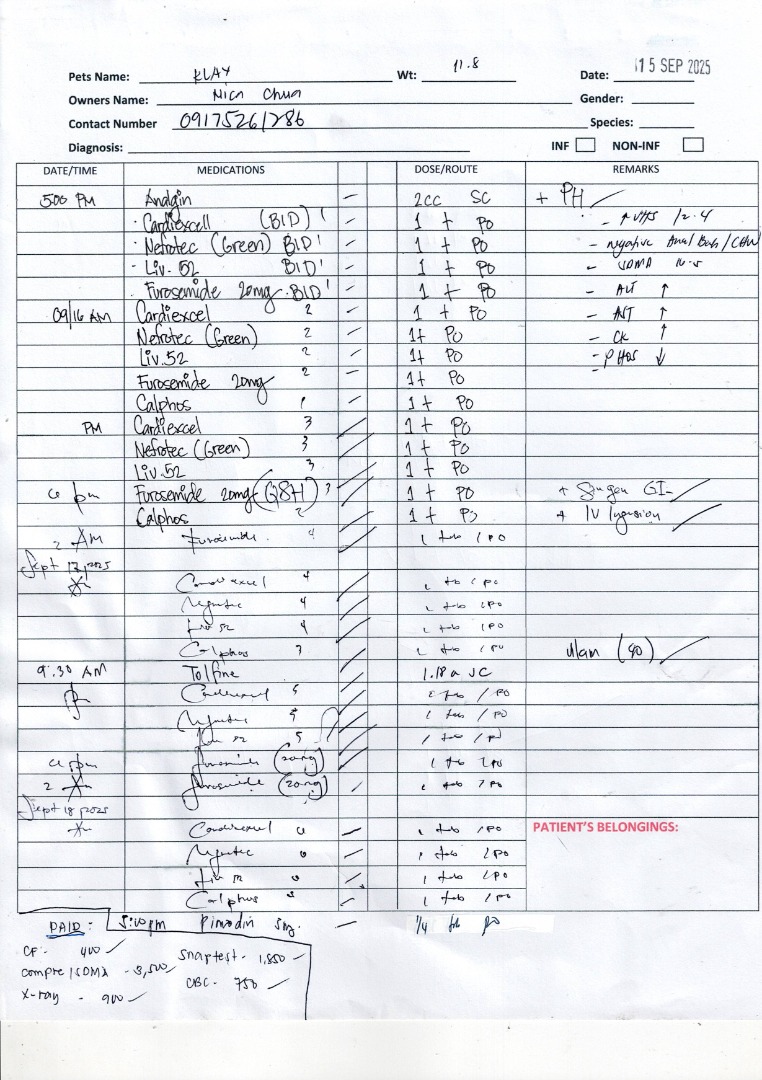 Pets Name: KLAY Wt: 11.8 Date: 15 SEP 2025
Owners Name: Nica Chua Gender:
Contact Number 09175261286 Species:
Diagnosis: INF NON-INF
DATE/TIME MEDICATIONS DOSE/ROUTE REMARKS
5:00 PM Analgin - 2cc SC + PH
Cardiexcell (BID) 1 - 1 t PO - ↑ VHS 12.4
Nefrotec (Green) BID 1 - 1 t PO - negative
Liv. 52 BID 1 - 1 t PO - SDMA
Furosemide 20mg BID 1 - 1 t PO - ALT ↑
09/16 AM Cardiexcel 2 - 1 t PO - AST ↑
Nefrotec (Green) 2 - 1t PO - CK ↑
Liv.52 2 - 1t PO - PHOS ↓
Furosemide 20mg 2 - 1t PO
Calphos 1 1t PO
PM Cardiexcel 3 1 t PO
Nefrotec (Green) 3 1 t PO
Liv.52 3 1 t PO
pm Furosemide 20mg (Q8H) 3 1 t PO + GI
Calphos 2 1 t PO + IV
2 AM Furosemide 4 1 tab / PO
Sept 17, 2025
Cardiexcel 4 1 tab / PO
4 1 tab / PO
Liv 52 4 1 tab / PO
Calphos 3 1 tab / PO (90)
9:30 AM Tolfine 1.18 SC
Cardiexcel 5 1 tab / PO
5 1 tab / PO
Liv 52 5 1 tab / PO
pm Furosemide (20mg) 1 tab / PO
2 Furosemide (20mg) 1 tab / PO
Sept 18, 2025
Cardiexcel 1 tab / PO PATIENT'S BELONGINGS:
1 tab / PO
Liv 52 1 tab / PO
Calphos 1 tab / PO
PAID: 5:10pm 5mg. - 1/4 tab po
CF - 400 Snaptest - 1,850
compre / SDMA - 3,500 CBC - 750
X-ray - 900